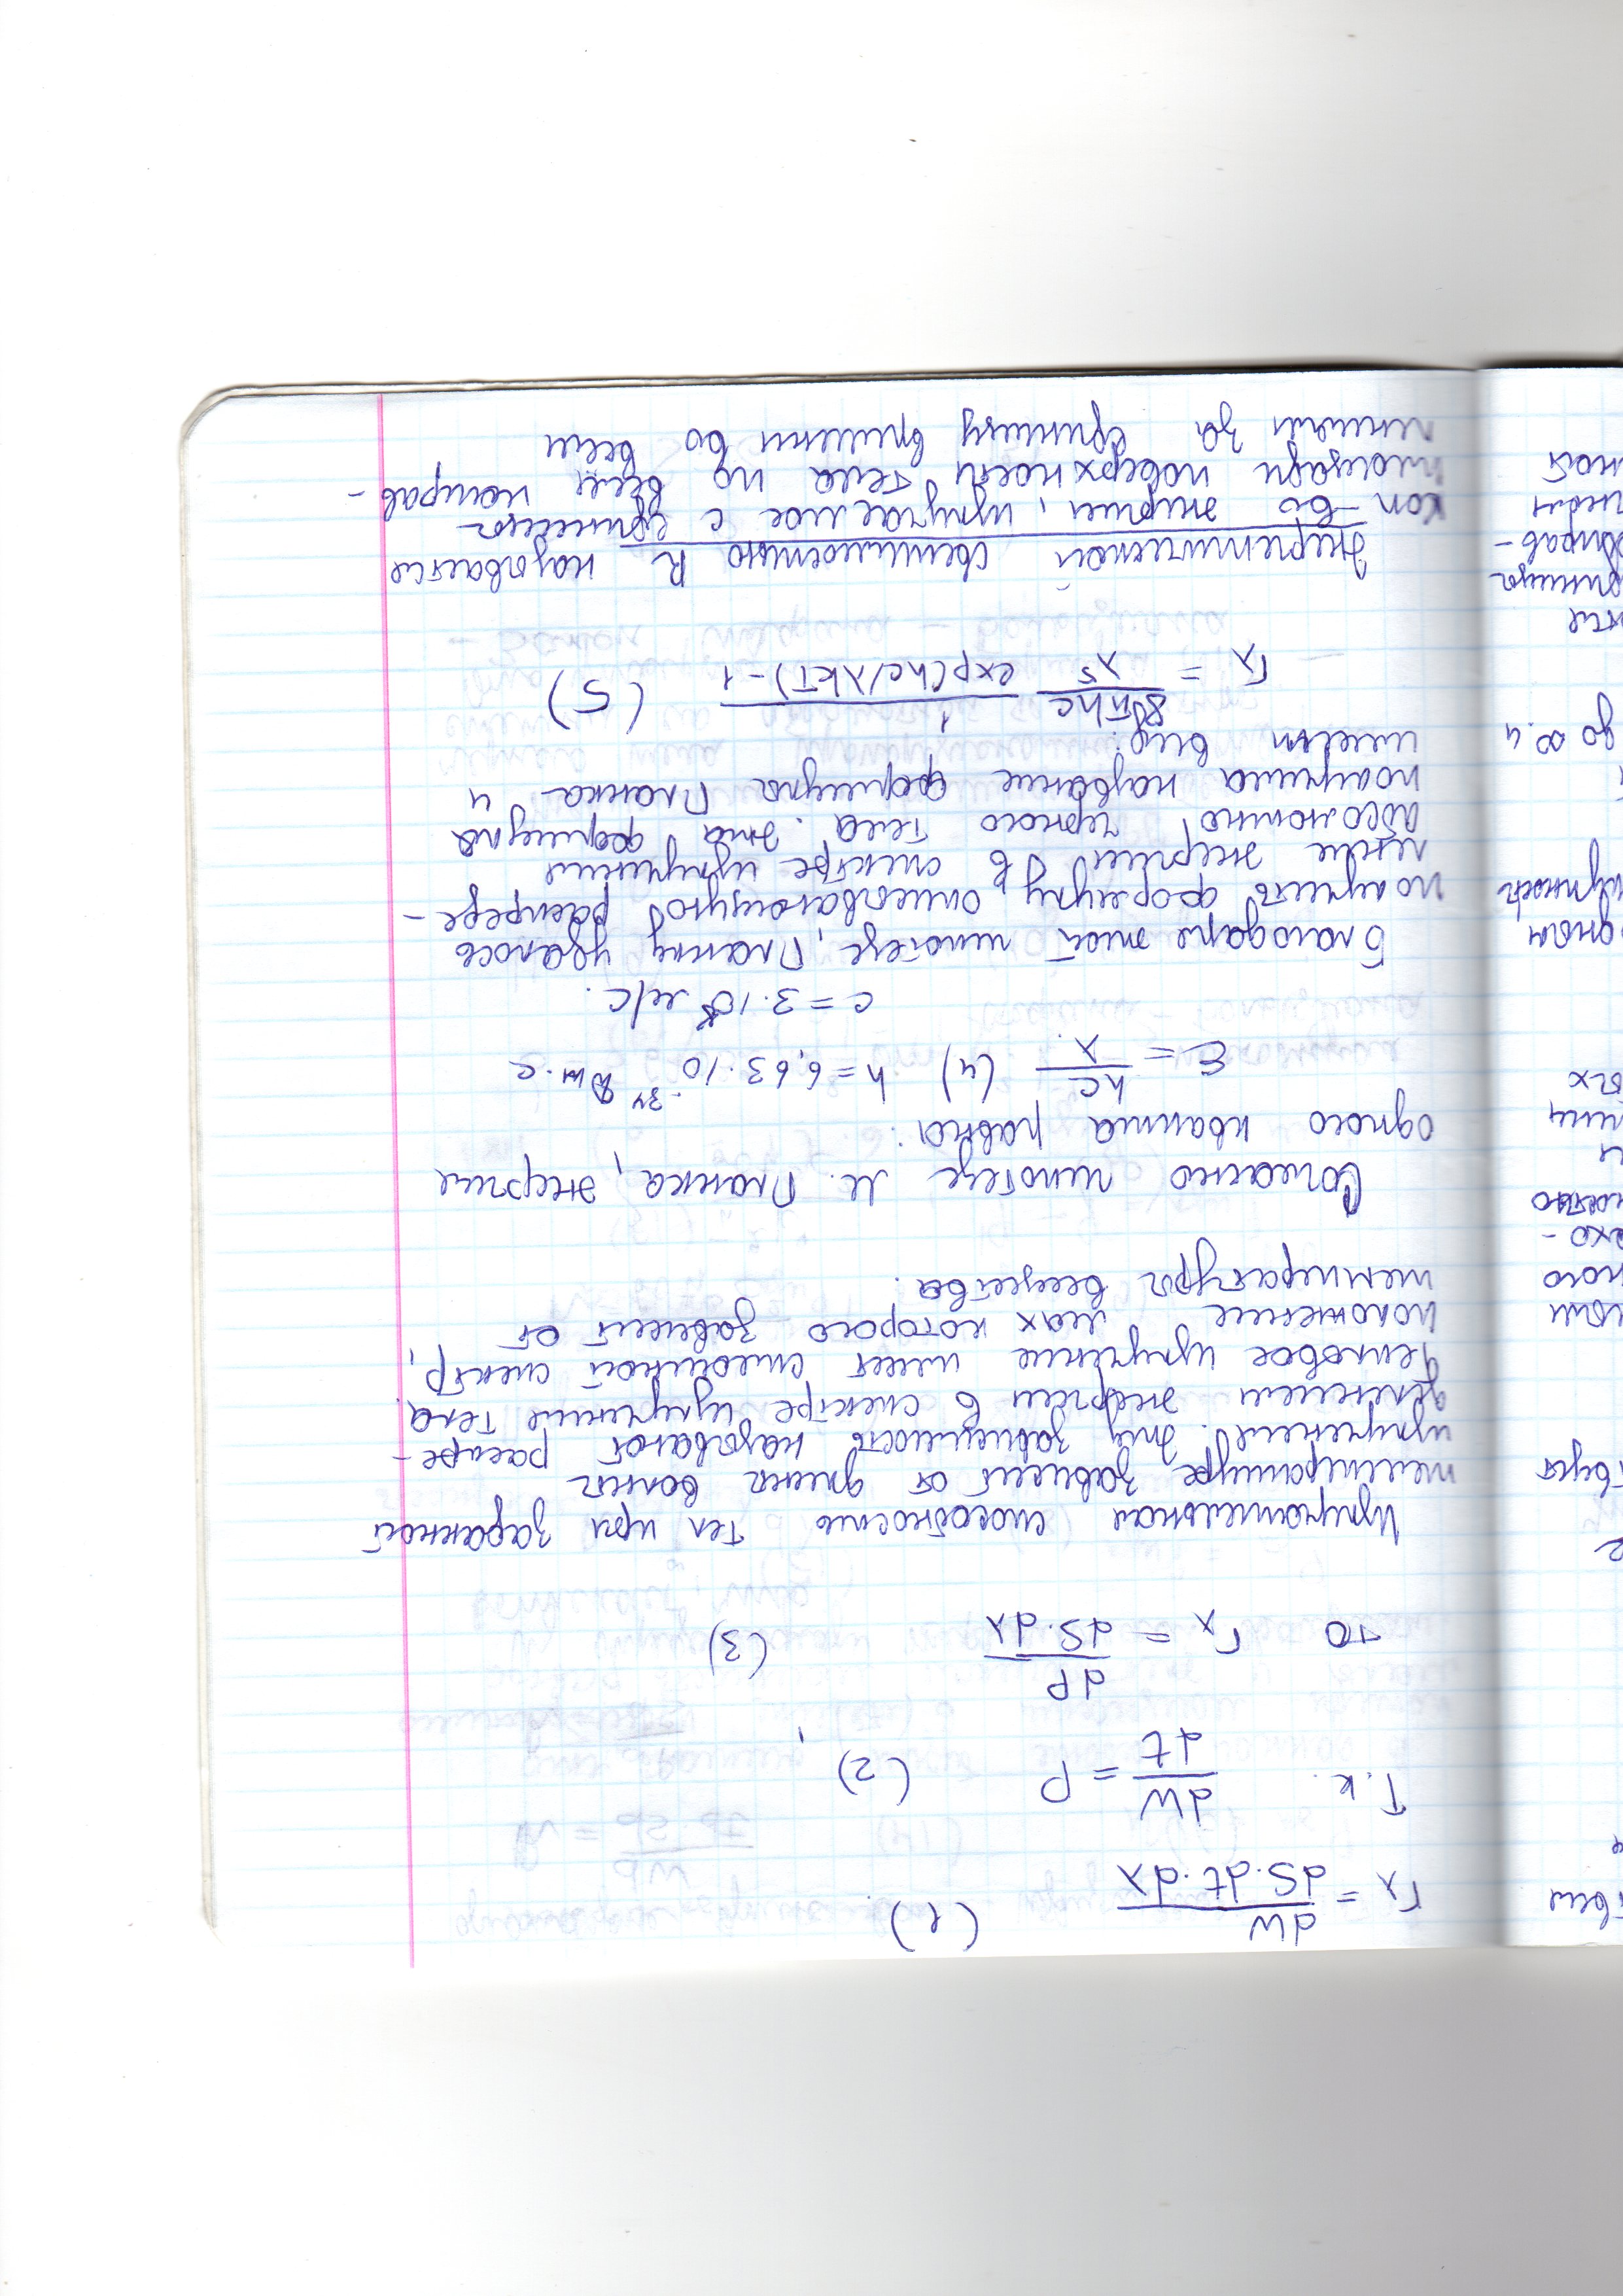 r_λ = dW / (dS·dt·dλ) (1).
Т.к. dW/dt = P (2),
то r_λ = dP / (dS·dλ) (3)
Излучательная способность тел при заданной
температуре зависит от длины волны
излучения. Эту зависимость называют распре-
делением энергии в спектре излучения тела.
Тепловое излучение имеет сплошной спектр,
положение мах которого зависит от
температуры вещества.
Согласно гипотезе М. Планка, энергия
одного кванта равна:
ε = hc/λ. (4) h = 6,63·10^-34 Дж·с
c = 3·10^8 м/с.
Благодаря этой гипотезе, Планку удалось
получить формулу, описывающую распреде-
ление энергии в спектре излучения
абсолютно черного тела. Эта формула
получила название формулы Планка и
имеет вид:
r_λ = 8πhc/λ^5 1/(exp(hc/λkT)-1) (5)
Энергетической светимостью R называется
кол-во энергии, излучаемое с единицы
площади поверхности тела по всем направ-
лениям за единицу времени во всём